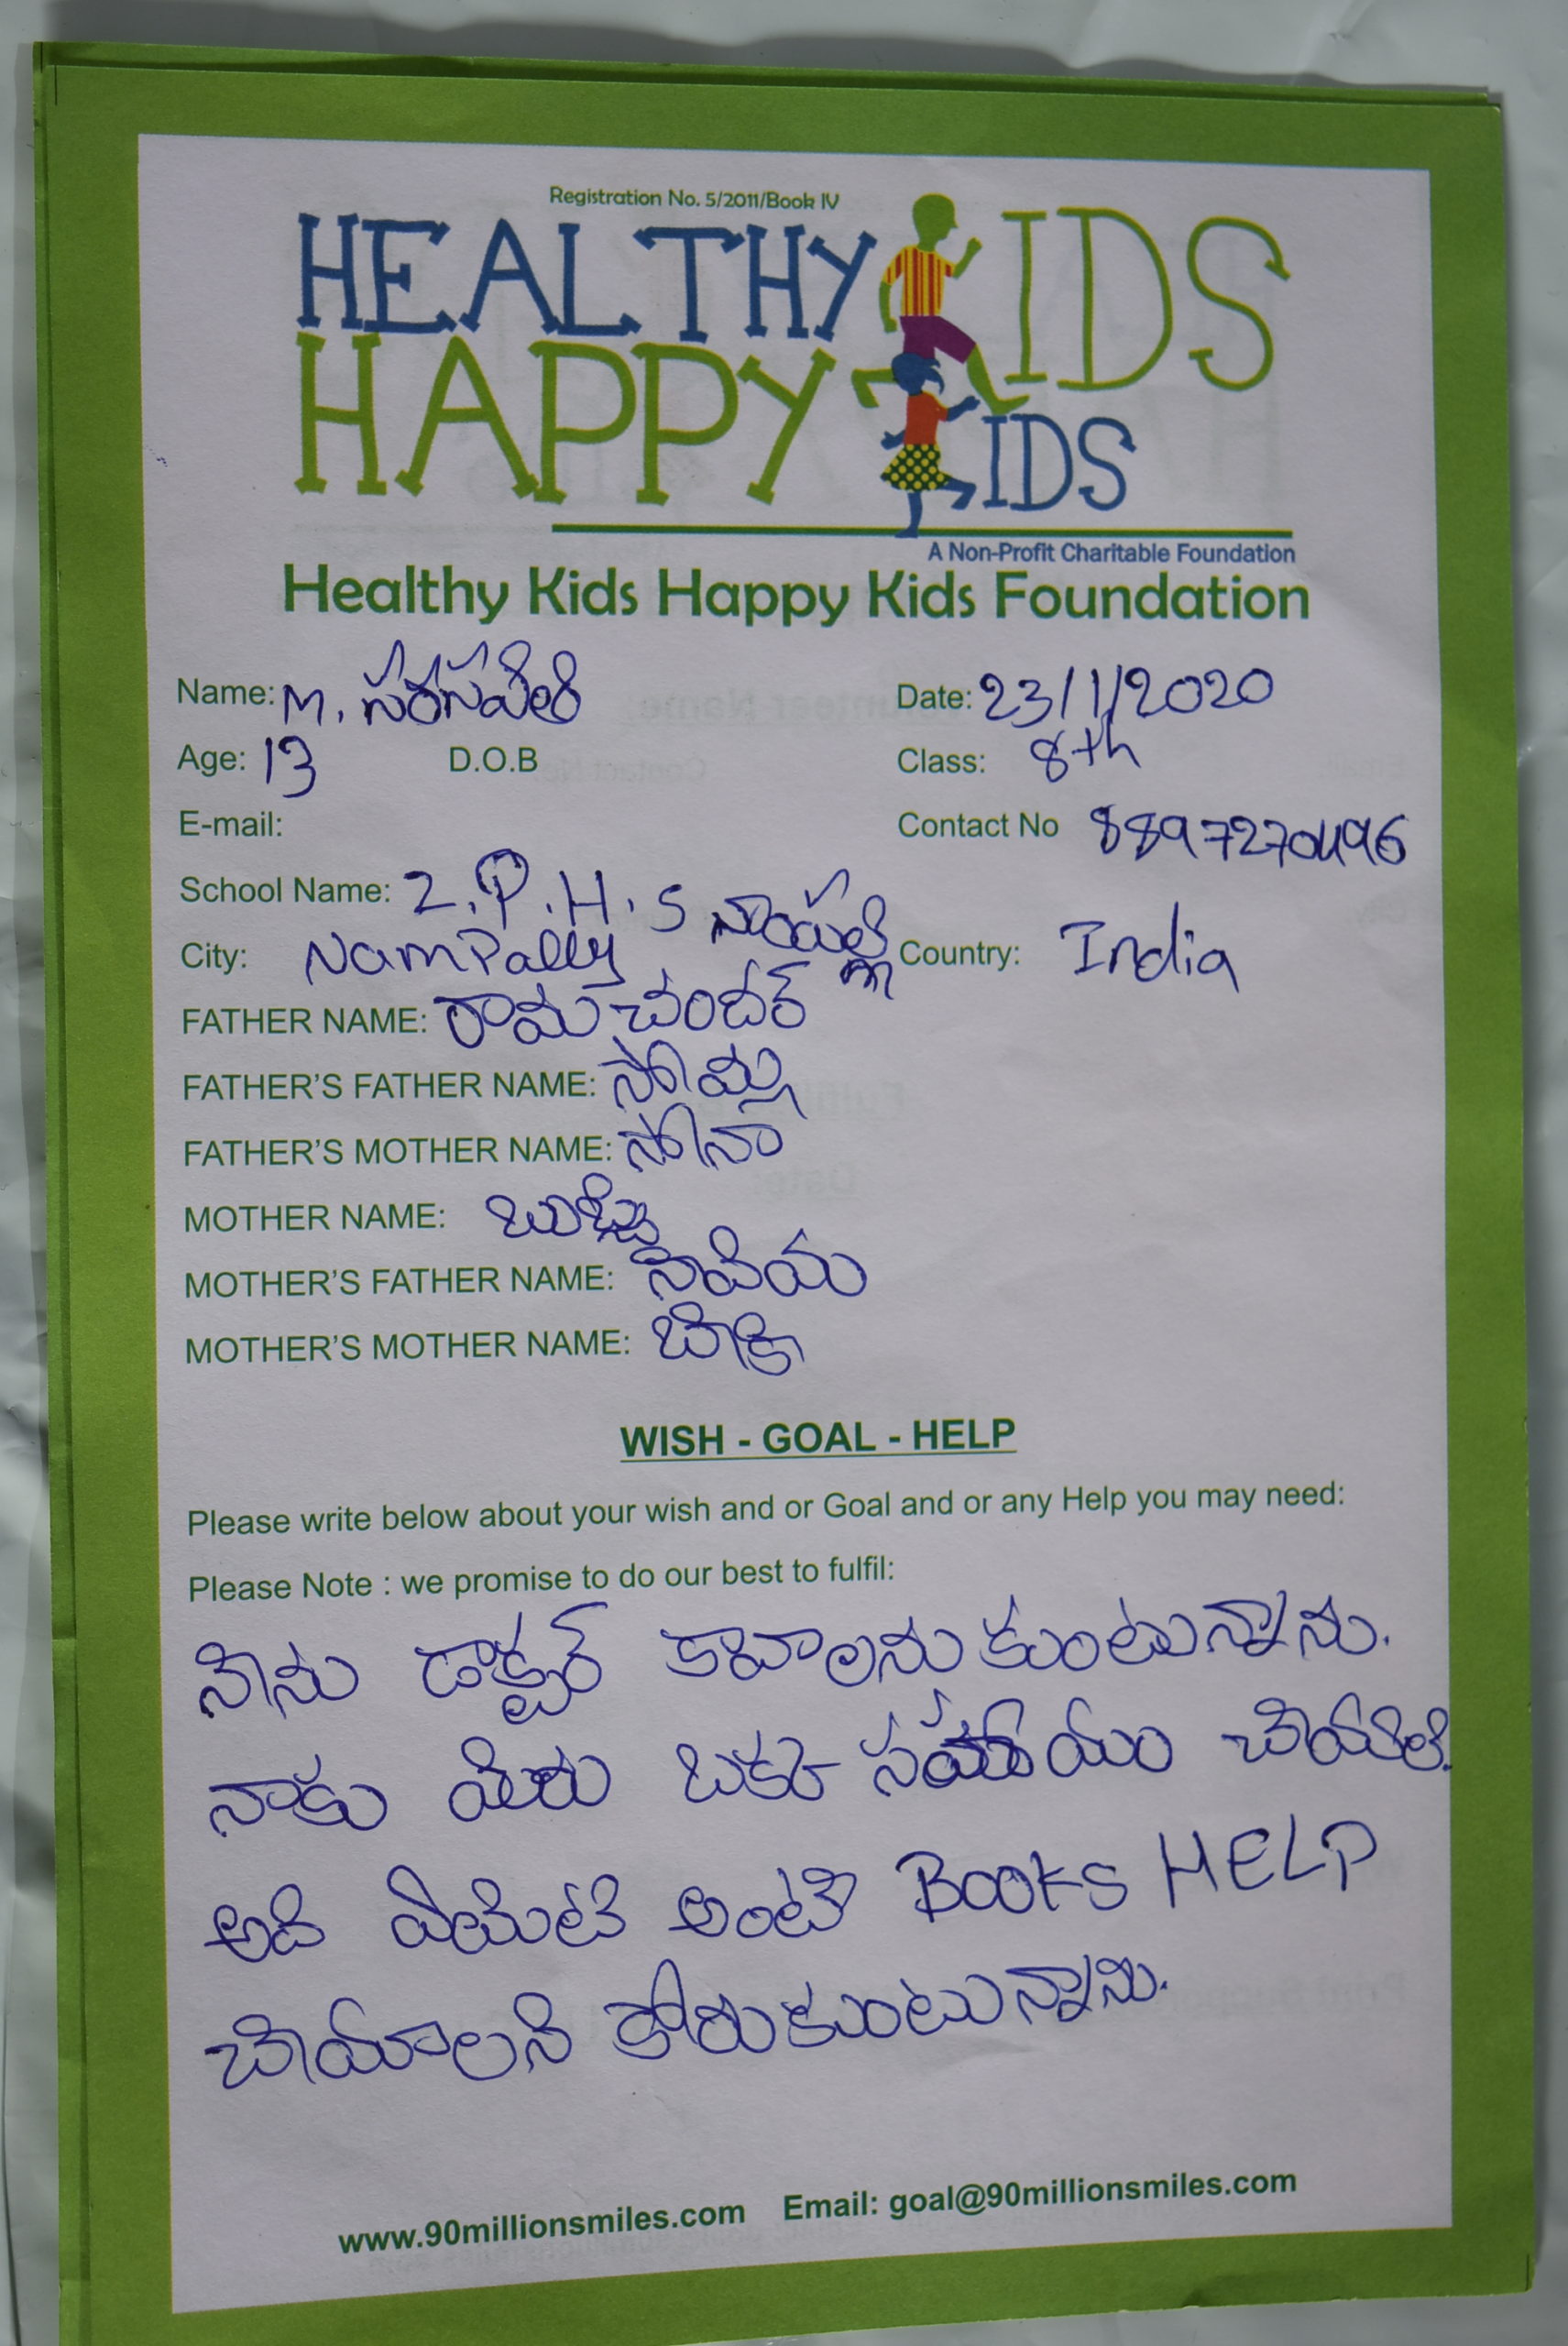 Registration No. 5/2011/Book IV
HEALTHY KIDS
HAPPY KIDS
A Non-Profit Charitable Foundation
Healthy Kids Happy Kids Foundation
Name: M. సరసవతి Date: 23/1/2020
Age: 13 D.O.B Class: 8th
E-mail: Contact No 8897270496
School Name: Z.P.H.S నాంపల్లి
City: NamPally Country: India
FATHER NAME: రామచందర్
FATHER'S FATHER NAME: సోమ్ల
FATHER'S MOTHER NAME: సోనా
MOTHER NAME: బుజ్జి
MOTHER'S FATHER NAME:
MOTHER'S MOTHER NAME:
WISH - GOAL - HELP
Please write below about your wish and or Goal and or any Help you may need:
Please Note : we promise to do our best to fulfil:
నేను డాక్టర్ కావాలనుకుంటున్నాను.
నాకు మీరు ఒక సహాయం చేయాలి.
అది ఏమిటి అంటే Books HELP
చేయాలని కోరుకుంటున్నాను.
www.90millionsmiles.com Email: goal@90millionsmiles.com